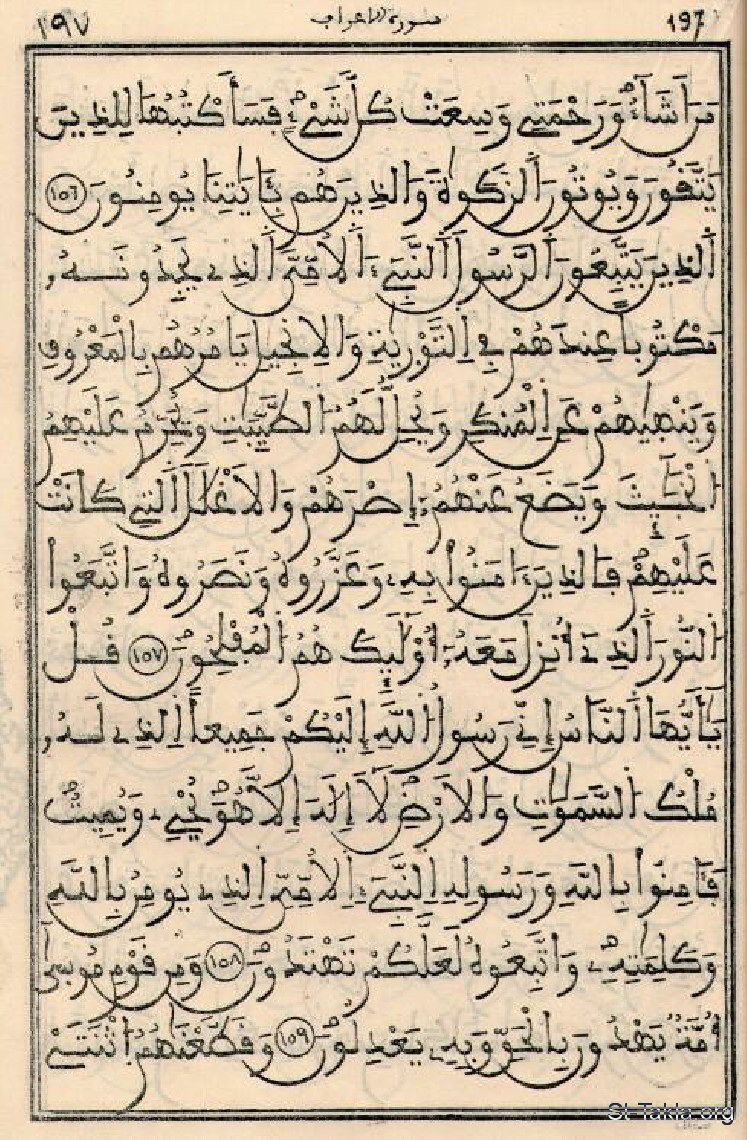 ١٩٧ سورة الاعراف 197
مَنَ اَشَآءُ وَرَحْمَتِے وَسِعَتْ كُلَّ شَےْءٖ فَسَأَكْتُبُهَا لِلذِينَ
يَتَّقُونَ وَيُوتُونَ اَلزَّكَوٰةَ وَالذِينَ هُم بِـَٔايَٰتِنَا يُومِنُونَ ١٥٦
اَلذِينَ يَتَّبِعُونَ اَلرَّسُولَ اَلنَّبِےٓءَ اَلُامِّىَّ اَلذِے يَجِدُونَهُۥ
مَكْتُوباً عِندَهُمْ فِے اِلتَّوْرَيٰةِ وَالِانجِيلِ يَامُرُهُم بِالْمَعْرُوفِ
وَيَنْهَيٰهُمْ عَنِ اِلْمُنكَرِ وَيُحِلُّ لَهُمُ اُلطَّيِّبَٰتِ وَيُحَرِّمُ عَلَيْهِمُ
اُلْخَبَٰٓئِثَ وَيَضَعُ عَنْهُمُۥٓ إِصْرَهُمْ وَالَاغْلَٰلَ اَلتِے كَانَتْ
عَلَيْهِمْ فَالذِينَ ءَامَنُواْ بِهِۦ وَعَزَّرُوهُ وَنَصَرُوهُ وَاتَّبَعُواْ
اُلنُّورَ اَلذِےٓ أُنزِلَ مَعَهُۥٓ أُوْلَٰٓئِكَ هُمُ اُلْمُفْلِحُونَ ١٥٧ قُلْ
يَٰٓأَيُّهَا اَلنَّاسُ إِنِّے رَسُولُ اُللَّهِ إِلَيْكُمْ جَمِيعاً اِلذِے لَهُۥ
مُلْكُ اُلسَّمَٰوَٰتِ وَالَارْضِ لَآ إِلَٰهَ إِلَّا هُوَ يُحْىِۦ وَيُمِيتُ
فَـَٔامِنُواْ بِاللَّهِ وَرَسُولِهِ اِلنَّبِےٓءِ اِلُامِّىِّ اِلذِے يُومِنُ بِاللَّهِ
وَكَلِمَٰتِهِۦ وَاتَّبِعُوهُ لَعَلَّكُمْ تَهْتَدُونَ ١٥٨ وَمِن قَوْمِ مُوسَىٰٓ
أُمَّةٌ يَهْدُونَ بِالْحَقِّ وَبِهِۦ يَعْدِلُونَ ١٥٩ وَقَطَّعْنَٰهُمُ اُثْنَتَےْ
St-Takla.org